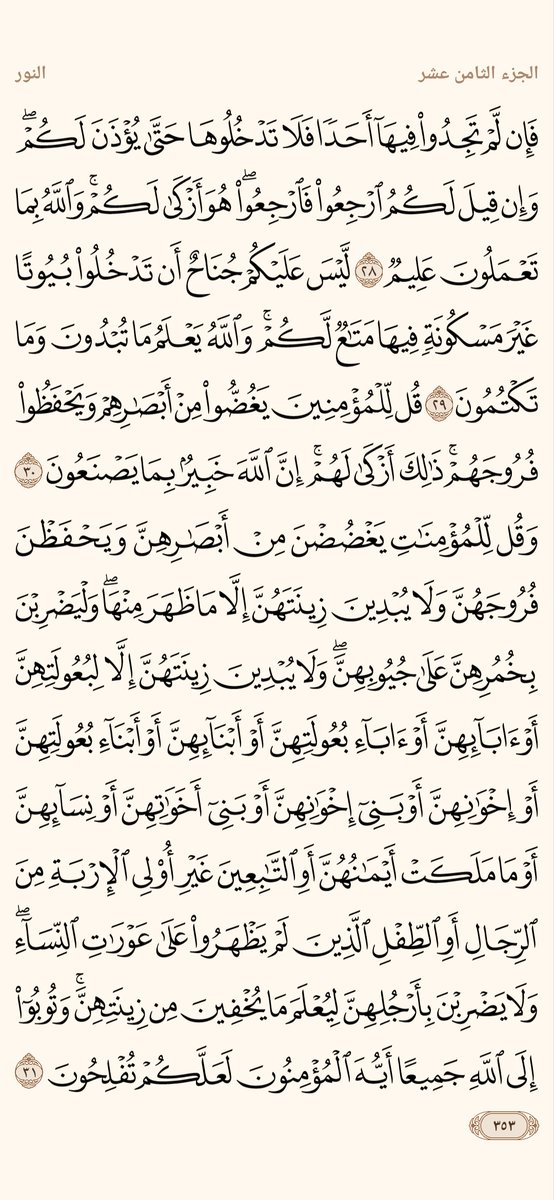 الجزء الثامن عشر
النور
فَإِن لَّمْ تَجِدُوا۟ فِيهَآ أَحَدًا فَلَا تَدْخُلُوهَا حَتَّىٰ يُؤْذَنَ لَكُمْ ۖ
وَإِن قِيلَ لَكُمُ ٱرْجِعُوا۟ فَٱرْجِعُوا۟ ۖ هُوَ أَزْكَىٰ لَكُمْ ۚ وَٱللَّهُ بِمَا
تَعْمَلُونَ عَلِيمٌ ٢٨ لَّيْسَ عَلَيْكُمْ جُنَاحٌ أَن تَدْخُلُوا۟ بُيُوتًا
غَيْرَ مَسْكُونَةٍ فِيهَا مَتَـٰعٌ لَّكُمْ ۚ وَٱللَّهُ يَعْلَمُ مَا تُبْدُونَ وَمَا
تَكْتُمُونَ ٢٩ قُل لِّلْمُؤْمِنِينَ يَغُضُّوا۟ مِنْ أَبْصَـٰرِهِمْ وَيَحْفَظُوا۟
فُرُوجَهُمْ ۚ ذَٰلِكَ أَزْكَىٰ لَهُمْ ۗ إِنَّ ٱللَّهَ خَبِيرٌۢ بِمَا يَصْنَعُونَ ٣٠
وَقُل لِّلْمُؤْمِنَـٰتِ يَغْضُضْنَ مِنْ أَبْصَـٰرِهِنَّ وَيَحْفَظْنَ
فُرُوجَهُنَّ وَلَا يُبْدِينَ زِينَتَهُنَّ إِلَّا مَا ظَهَرَ مِنْهَا ۖ وَلْيَضْرِبْنَ
بِخُمُرِهِنَّ عَلَىٰ جُيُوبِهِنَّ ۖ وَلَا يُبْدِينَ زِينَتَهُنَّ إِلَّا لِبُعُولَتِهِنَّ
أَوْ ءَابَآئِهِنَّ أَوْ ءَابَآءِ بُعُولَتِهِنَّ أَوْ أَبْنَآئِهِنَّ أَوْ أَبْنَآءِ بُعُولَتِهِنَّ
أَوْ إِخْوَٰنِهِنَّ أَوْ بَنِىٓ إِخْوَٰنِهِنَّ أَوْ بَنِىٓ أَخَوَٰتِهِنَّ أَوْ نِسَآئِهِنَّ
أَوْ مَا مَلَكَتْ أَيْمَـٰنُهُنَّ أَوِ ٱلتَّـٰبِعِينَ غَيْرِ أُو۟لِى ٱلْإِرْبَةِ مِنَ
ٱلرِّجَالِ أَوِ ٱلطِّفْلِ ٱلَّذِينَ لَمْ يَظْهَرُوا۟ عَلَىٰ عَوْرَٰتِ ٱلنِّسَآءِ ۖ
وَلَا يَضْرِبْنَ بِأَرْجُلِهِنَّ لِيُعْلَمَ مَا يُخْفِينَ مِن زِينَتِهِنَّ ۚ وَتُوبُوٓا۟
إِلَى ٱللَّهِ جَمِيعًا أَيُّهَ ٱلْمُؤْمِنُونَ لَعَلَّكُمْ تُفْلِحُونَ ٣١
٣٥٣